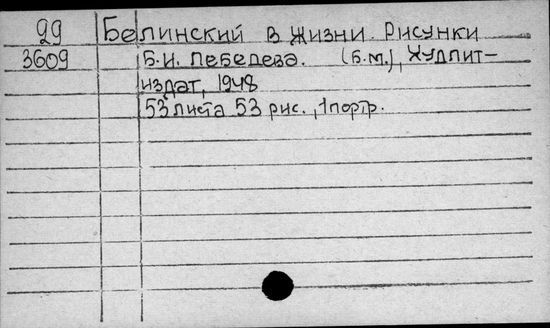 99 Белинский в жизни. Рисунки
3609 Б.И. Лебедева. (Б.м.), Худлит-
издат, 1948
53 листа 53 рис., 1 портр.